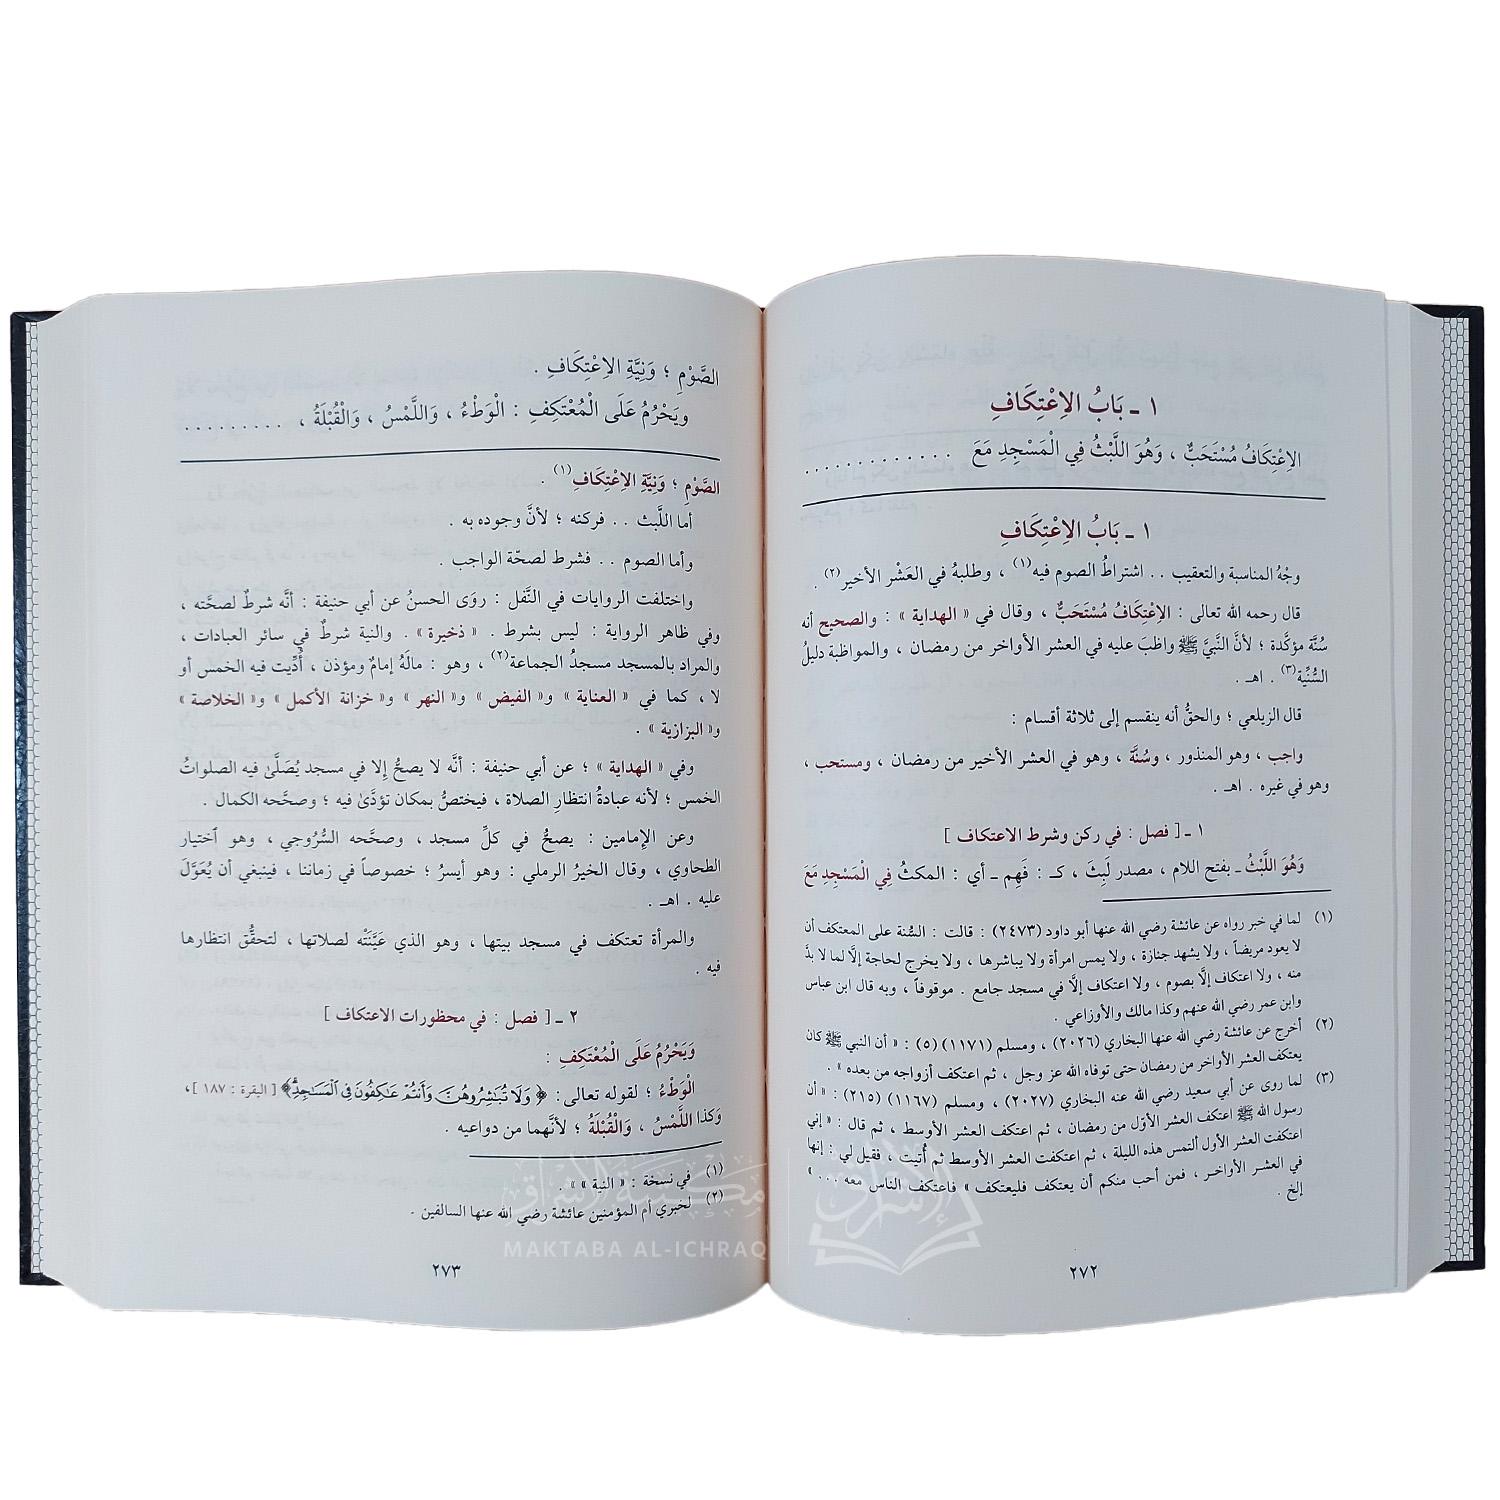 ١ ـ بَابُ الاِعْتِكَافِ
الاِعْتِكَافُ مُسْتَحَبٌّ ، وَهُوَ اللَّبْثُ فِي الْمَسْجِدِ مَعَ . . . . . . . . . . . . .
١ ـ بَابُ الاِعْتِكَافِ
وجْهُ المناسبة والتعقيب . . اشتراطُ الصوم فيه(١) ، وطلبهُ في العَشْر الأخير(٢) .
قال رحمه الله تعالى : الاِعْتِكَافُ مُسْتَحَبٌّ ، وقال في « الهداية » : والصحيح أنه
سُنَّة مؤكَّدة ؛ لأنَّ النَّبيَّ ﷺ واظبَ عليه في العشر الأواخر من رمضان ، والمواظبة دليلُ
السُّنِّية(٣) . اهـ .
قال الزيلعي ؛ والحقُّ أنه ينقسم إلى ثلاثة أقسام :
واجب ، وهو المنذور ، وسُنَّة ، وهو في العشر الأخير من رمضان ، ومستحب ،
وهو في غيره . اهـ .
١ ـ [ فصل : في ركن وشرط الاعتكاف ]
وَهُوَ اللَّبْثُ ـ بفتح اللام ، مصدر لَبِثَ ، كـ : فَهِم ـ أي : المكثُ فِي الْمَسْجِدِ مَعَ
(١) لما في خبر رواه عن عائشة رضي الله عنها أبو داود (٢٤٧٣) : قالت : السُّنة على المعتكف أن
لا يعود مريضاً ، ولا يشهد جنازة ، ولا يمس امرأة ولا يباشرها ، ولا يخرج لحاجة إلَّا لما لا بدَّ
منه ، ولا اعتكاف إلَّا بصوم ، ولا اعتكاف إلَّا في مسجد جامع . موقوفاً ، وبه قال ابن عباس
وابن عمر رضي الله عنهم وكذا مالك والأوزاعي .
(٢) أخرج عن عائشة رضي الله عنها البخاري (٢٠٢٦) ، ومسلم (١١٧١) (٥) : « أن النبي ﷺ كان
يعتكف العشر الأواخر من رمضان حتى توفاه الله عز وجل ، ثم اعتكف أزواجه من بعده » .
(٣) لما روى عن أبي سعيد رضي الله عنه البخاري (٢٠٢٧) ، ومسلم (١١٦٧) (٢١٥) : « أن
رسول الله ﷺ اعتكف العشر الأوّل من رمضان ، ثم اعتكف العشر الأوسط ، ثم قال : « إني
اعتكفت العشر الأول ألتمس هذه الليلة ، ثم اعتكفت العشر الأوسط ثم أُتيت ، فقيل لي : إنها
في العشر الأواخر ، فمن أحب منكم أن يعتكف فليعتكف » فاعتكف الناس معه ... »
إلخ .
٢٧٢
الصَّوْمِ ؛ وَنِيَّةِ الاِعْتِكَافِ .
وَيَحْرُمُ عَلَى الْمُعْتَكِفِ : الْوَطْءُ ، وَاللَّمْسُ ، وَالْقُبْلَةُ ، . . . . . . . . .
الصَّوْمِ ؛ وَنِيَّةِ الاِعْتِكَافِ(١) .
أما اللَّبث . . فركنه ؛ لأنَّ وجوده به .
وأما الصوم . . فشرط لصحّة الواجب .
واختلفت الروايات في النَّفل : روَى الحسنُ عن أبي حنيفة : أنَّه شرطٌ لصحَّته ،
وفي ظاهر الرواية : ليس بشرط . « ذخيرة » . والنية شرطٌ في سائر العبادات ،
والمراد بالمسجد مسجدُ الجماعة(٢) ، وهو : مالَهُ إمامٌ ومؤذن ، أُدِّيت فيه الخمس أو
لا ، كما في « العناية » و« الفيض » و« النهر » و« خزانة الأكمل » و« الخلاصة »
و« البزازية » .
وفي « الهداية » ؛ عن أبي حنيفة : أنَّه لا يصحُّ إلا في مسجد يُصَلَّىٰ فيه الصلواتُ
الخمس ؛ لأنه عبادةُ انتظارِ الصلاة ، فيختصُّ بمكان تؤدَّىٰ فيه ؛ وصحَّحه الكمال .
وعن الإمامين : يصحُّ في كلِّ مسجد ، وصحَّحه السُّرُوجي ، وهو أختيار
الطحاوي ، وقال الخيرُ الرملي : وهو أيسرُ ؛ خصوصاً في زماننا ، فينبغي أن يُعَوَّلَ
عليه . اهـ .
والمرأة تعتكف في مسجد بيتها ، وهو الذي عَيَّنَتْه لصلاتها ، لتحقُّق انتظارها
فيه .
٢ ـ [ فصل : في محظورات الاعتكاف ]
وَيَحْرُمُ عَلَى الْمُعْتَكِفِ :
الْوَطْءُ ؛ لقوله تعالى : ﴿ وَلَا تُبَٰشِرُوهُنَّ وَأَنتُمْ عَٰكِفُونَ فِي الْمَسَٰجِدِ﴾ [ البقرة : ١٨٧ ] ،
وَكذا اللَّمْسُ ، وَالْقُبْلَةُ ؛ لأنَّهما من دواعيه .
(١) في نسخة : « النية » .
(٢) لخبري أم المؤمنين عائشة رضي الله عنها السالفين .
٢٧٣
مكتبة الإشراق
MAKTABA AL-ICHRAQ
الإشراق